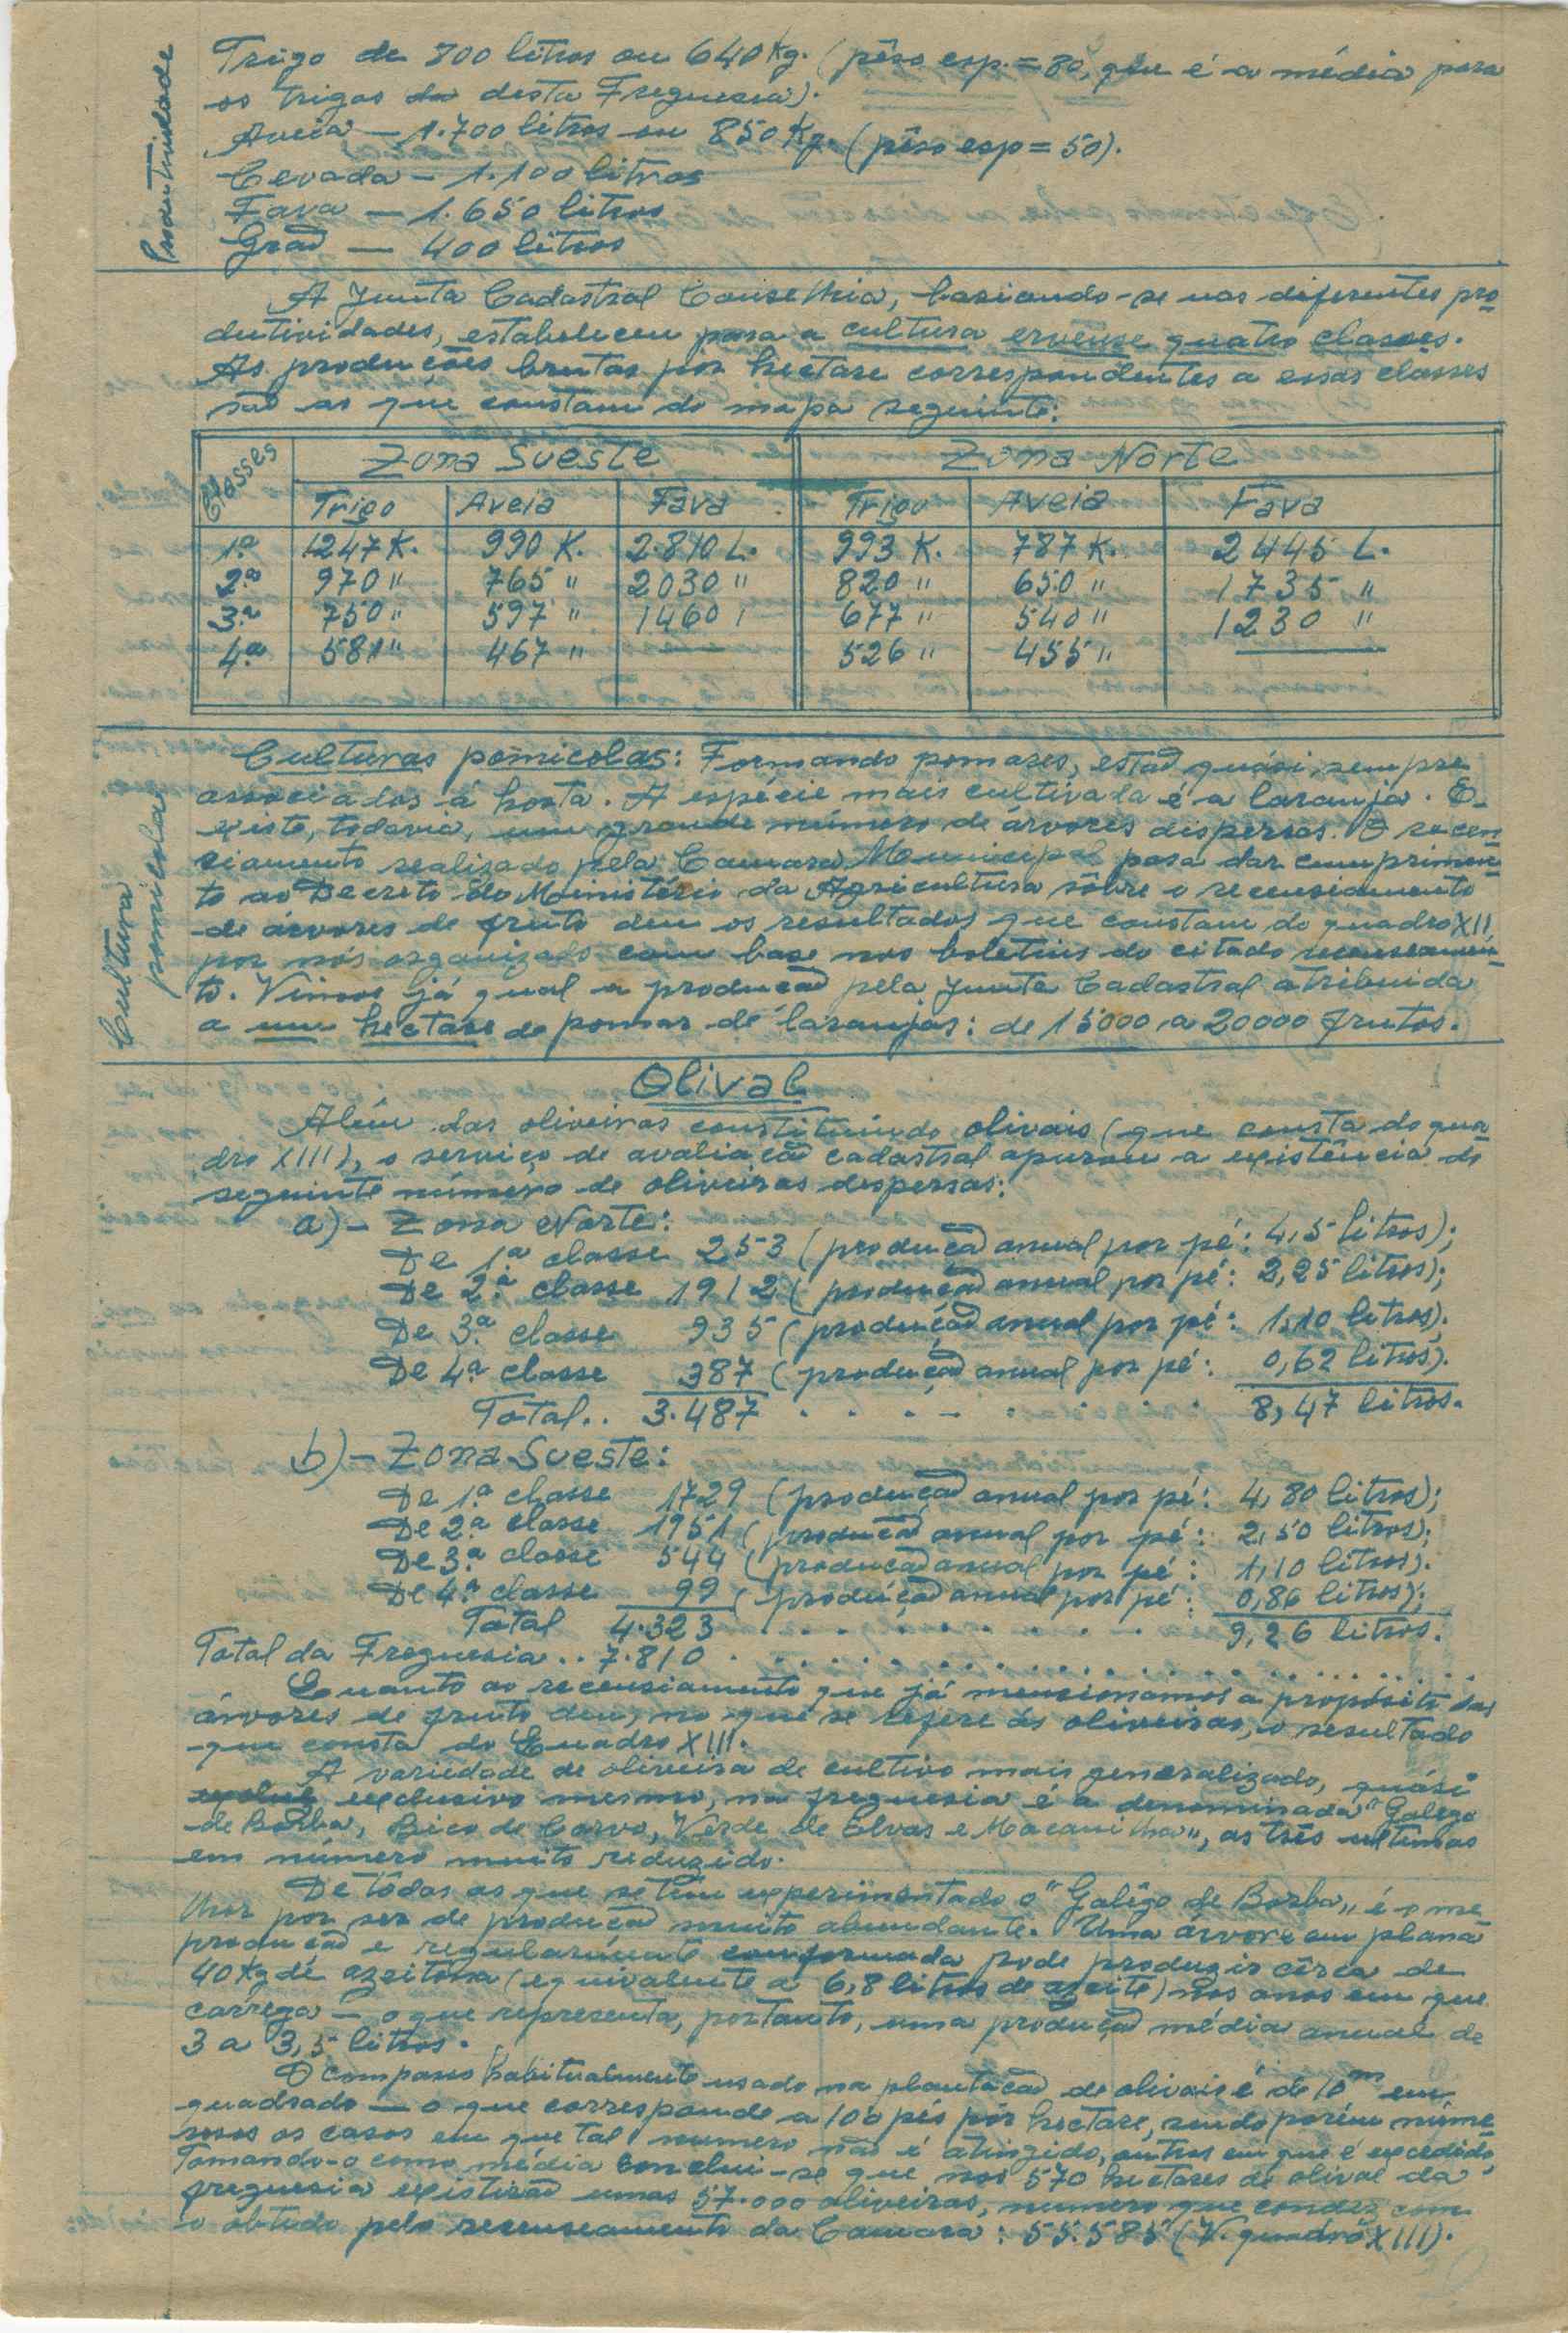 Produtividade
Trigo de 800 litros ou 640 Kg. (pêso esp. = 80, que é a média para
os trigos da desta Freguesia).
Aveia — 1.700 litros ou 850 Kg. (pêso esp = 50).
Cevada — 1.100 litros
Fava — 1.650 litros
Grão — 400 litros
A Junta Cadastral Concelhia, basiando-se nas diferentes pro
dutividades, estabeleceu para a cultura ervense quatro classes.
As produções brutas por hectare correspondentes a essas classes
são as que constam do mapa seguinte:
Classes Zona Sueste Zona Norte
Trigo Aveia Fava Trigo Aveia Fava
1.ª 1247 K. 990 K. 2.810 L. 993 K. 787 K. 2445 L.
2.ª 970 " 765 " 2030 " 820 " 650 " 1735 "
3.ª 750 " 597 " 1460 " 677 " 540 " 1230 "
4.ª 581 " 467 " — 526 " 455 " —
Cultura pomicola
Culturas pomicolas: Formando pomares, estão quási sempre
associados á horta. A espécie mais cultivada é a laranja. E-
xiste, todavia, um grande número de árvores dispersas. O recen
ciamento realizado pela Camara Municipal para dar cumprimen
to ao Decreto do Ministério da Agricultura sôbre o recensiamento
de árvores de fruto deu os resultados que constam do quadro XII
por nós organizado com base nos boletins do citado recenseamen
to. Vimos já qual a produção pela Junta Cadastral atribuida
a um hectare de pomar de laranjas: de 15000 a 20000 frutos.
Olival
Além das oliveiras constituindo olivais (que consta do qua
dro XIII), o serviço de avaliação cadastral apurou a existência do
seguinte número de oliveiras dispersas:
a) — Zona Norte:
De 1.ª classe 253 (produção anual por pé: 4,5 litros);
De 2.ª classe 1912 (produção anual por pé: 2,25 litros);
De 3.ª classe 935 (produção anual por pé: 1,10 litros).
De 4.ª classe 387 (produção anual por pé: 0,62 litros).
Total.. 3.487 . . . . . . . . 8,47 litros.
b) — Zona Sueste:
De 1.ª classe 1729 (produção anual por pé: 4,80 litros);
De 2.ª classe 1951 (produção anual por pé: 2,50 litros);
De 3.ª classe 544 (produção anual por pé: 1,10 litros).
De 4.ª classe 99 (produção anual por pé: 0,86 litros);
Total 4.323 . . . . . . . . . . 9,26 litros.
Total da Freguesia .. 7.810 . . . . . . . . . . . . . . . .
Quanto ao recensiamento que já mencionamos a propósito das
árvores de fruto deu, no que se refere ás oliveiras, o resultado
que consta do Quadro XIII.
A variedade de oliveira de cultivo mais generalizado, quási
exclusivo mesmo, na freguesia é a denominada "Galego
de Borba, Bico de Corvo, Verde de Elvas e Macanilha", as três ultimas
em número muito reduzido.
De tôdas as que se têm experimentado o "Galêgo de Borba" é o me
lhor por ser de produção muito abundante. Uma árvore em plana
produção e regularmente conformada pode produzir cêrca de
40 Kg de azeitona (equivalente a 6,8 litros de azeite) nos anos em que
carrega — o que representa, portanto, uma produção média anual de
3 a 3,5 litros.
O compasso habitualmente usado na plantação de olivais é de 10m em
quadrado — o que corresponde a 100 pés por hectare, sendo porém núme
rosos os casos em que tal numero não é atingido, outros em que é excedido,
Tomando-o como média conclui-se que nos 570 hectares de olival da
freguesia existirão umas 57.000 oliveiras, numero que condiz com
o obtido pelo recenseamento da Camara: 55.585 (V. quadro XIII).